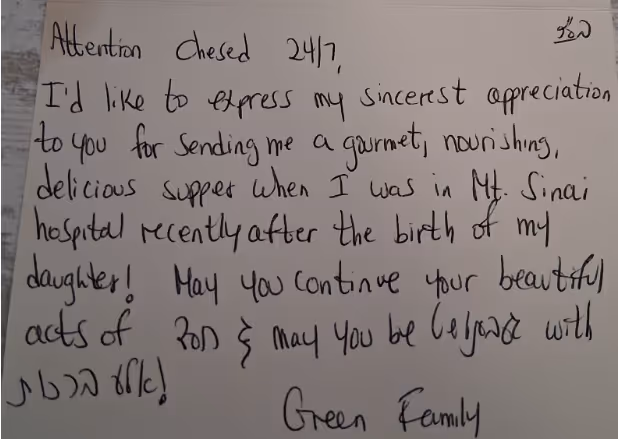 בס"ד
Attention Chesed 24/7,
I'd like to express my sincerest appreciation
to you for sending me a gourmet, nourishing,
delicious supper when I was in Mt. Sinai
hospital recently after the birth of my
daughter! May you continue your beautiful
acts of חסד & may you be with
אלע ברכות!
Green Family